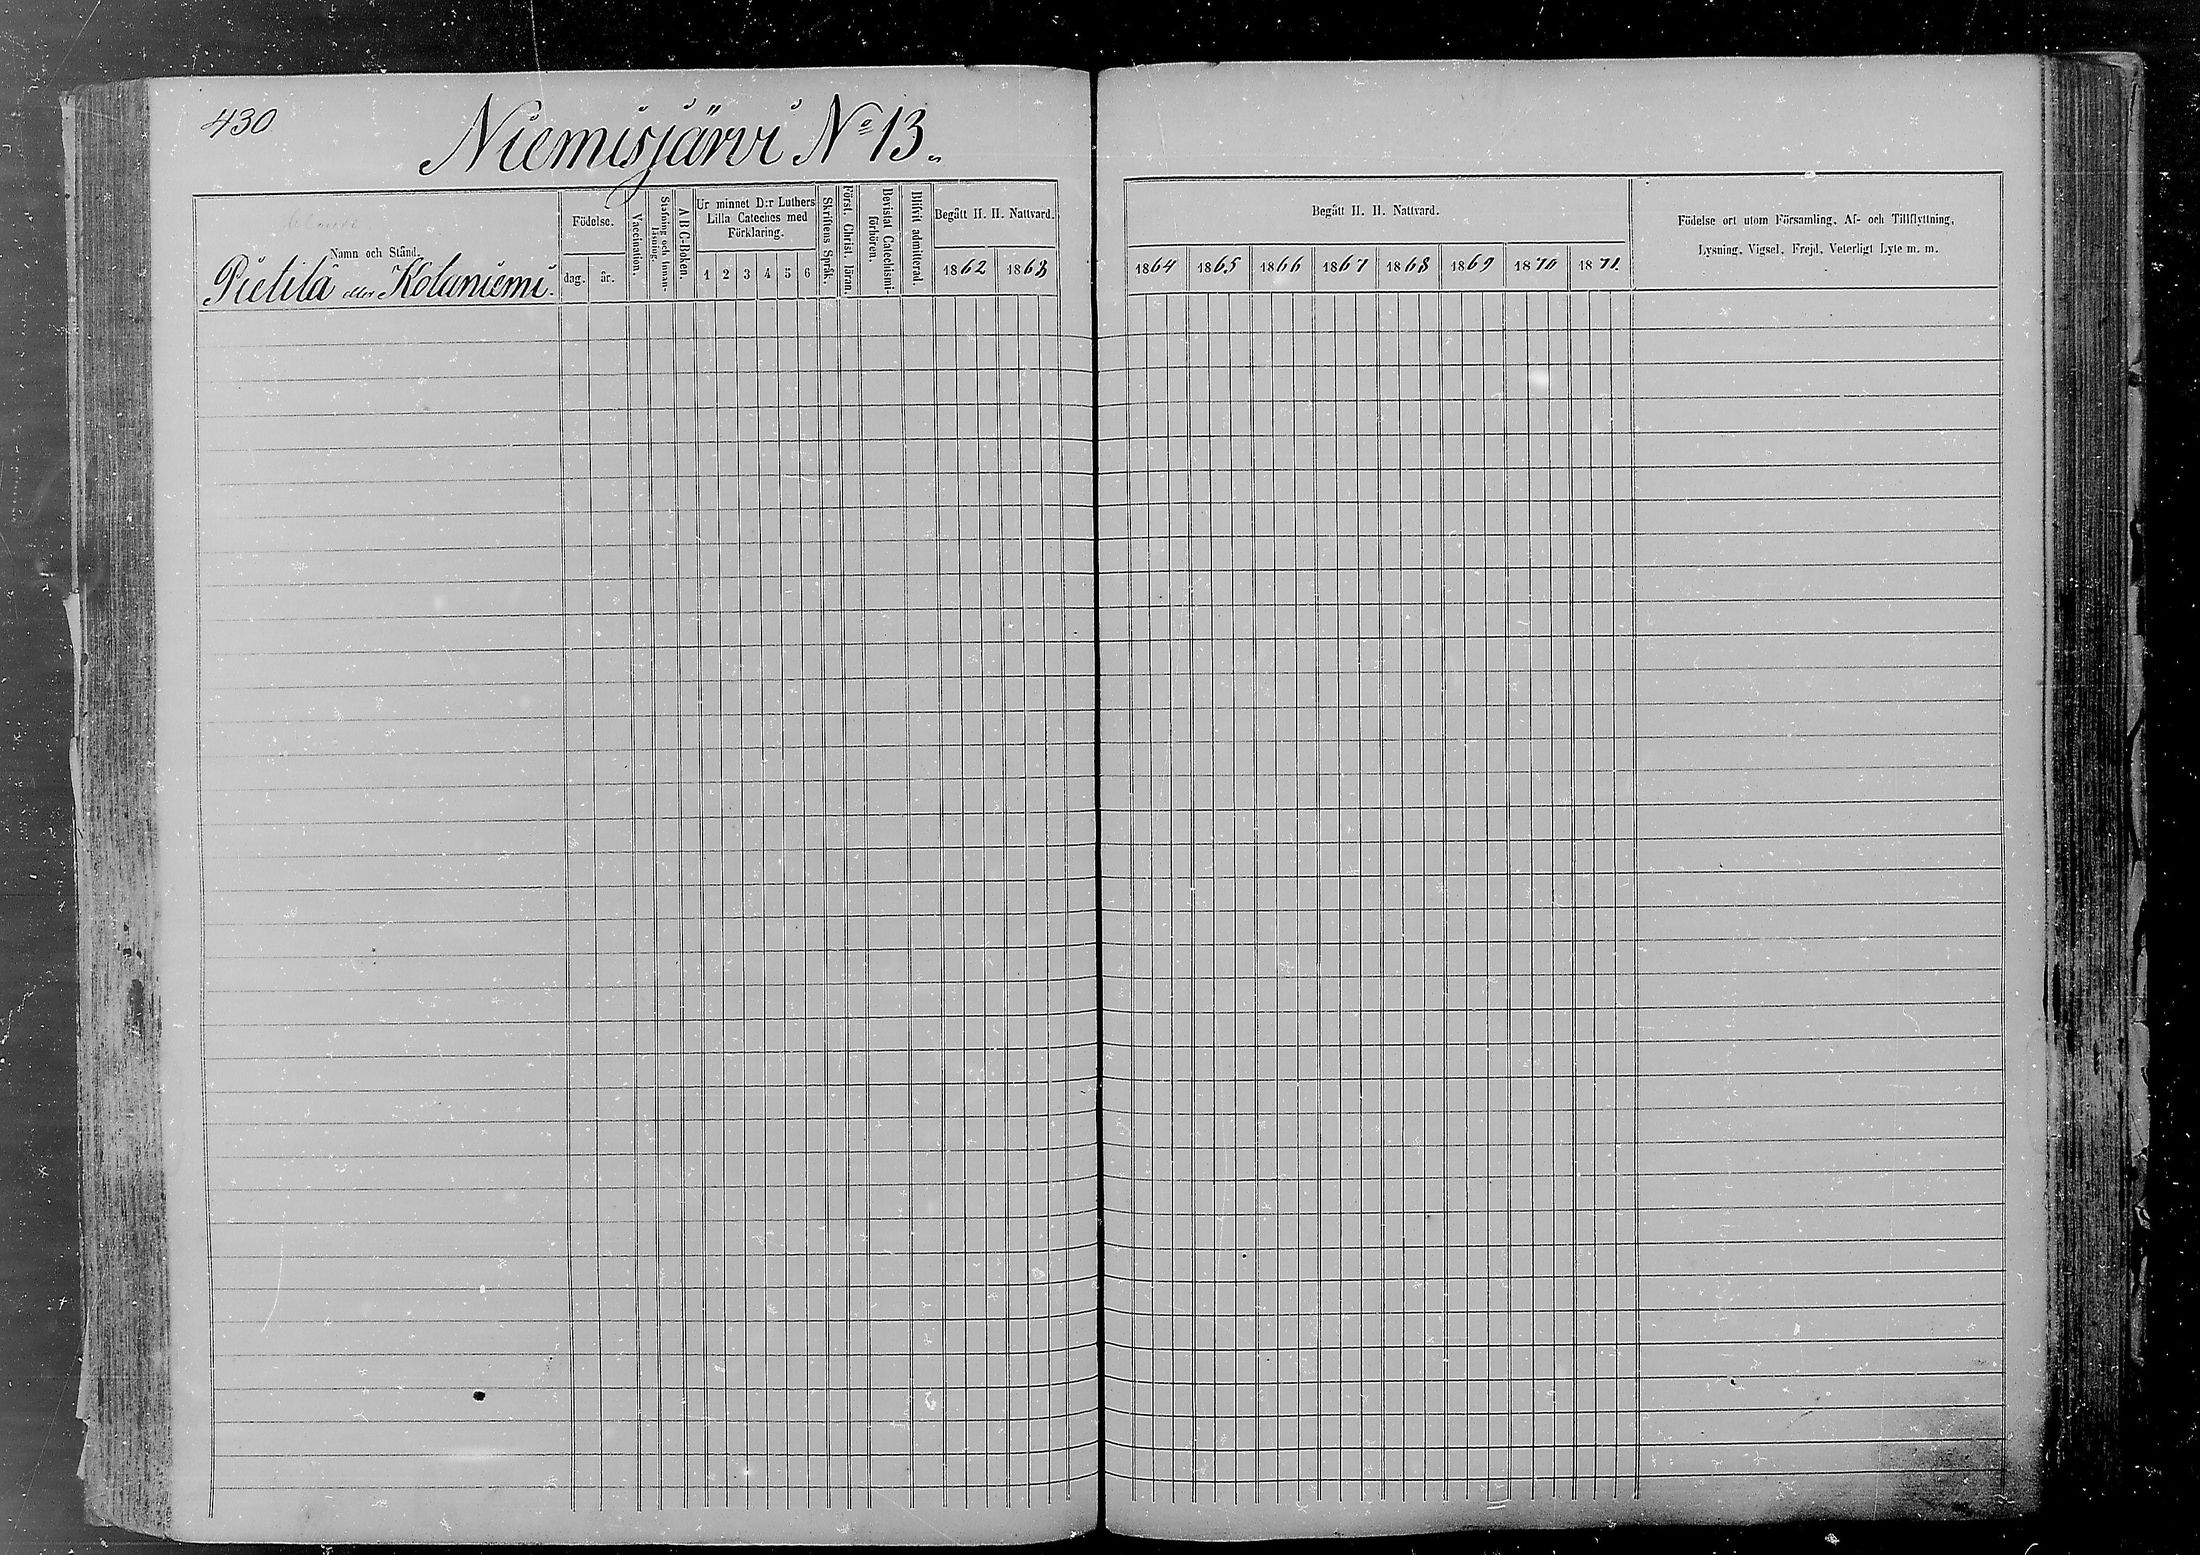 430
Niemisjärvi No 13.
Namn och Stånd.
Pietilä eller Kolaniemi.
Födelse.
dag. år.
Vaccination.
Stafning och Innan-
läsning.
A B C-Boken.
Ur minnet D:r Luthers
Lilla Cateches med
Förklaring.
1 2 3 4 5 6
Skriftens Språk.
Först. Christ. läran.
Bevistat Catechismi-
förhören.
Blifvit admitterad.
Begått H. H. Nattvard.
1862 1863
Begått H. H. Nattvard.
1864 1865 1866 1867 1868 1869 1870 1871.
Födelse ort utom Församling, Af- och Tillflyttning,
Lysning, Vigsel, Frejd, Veterligt Lyte m. m.